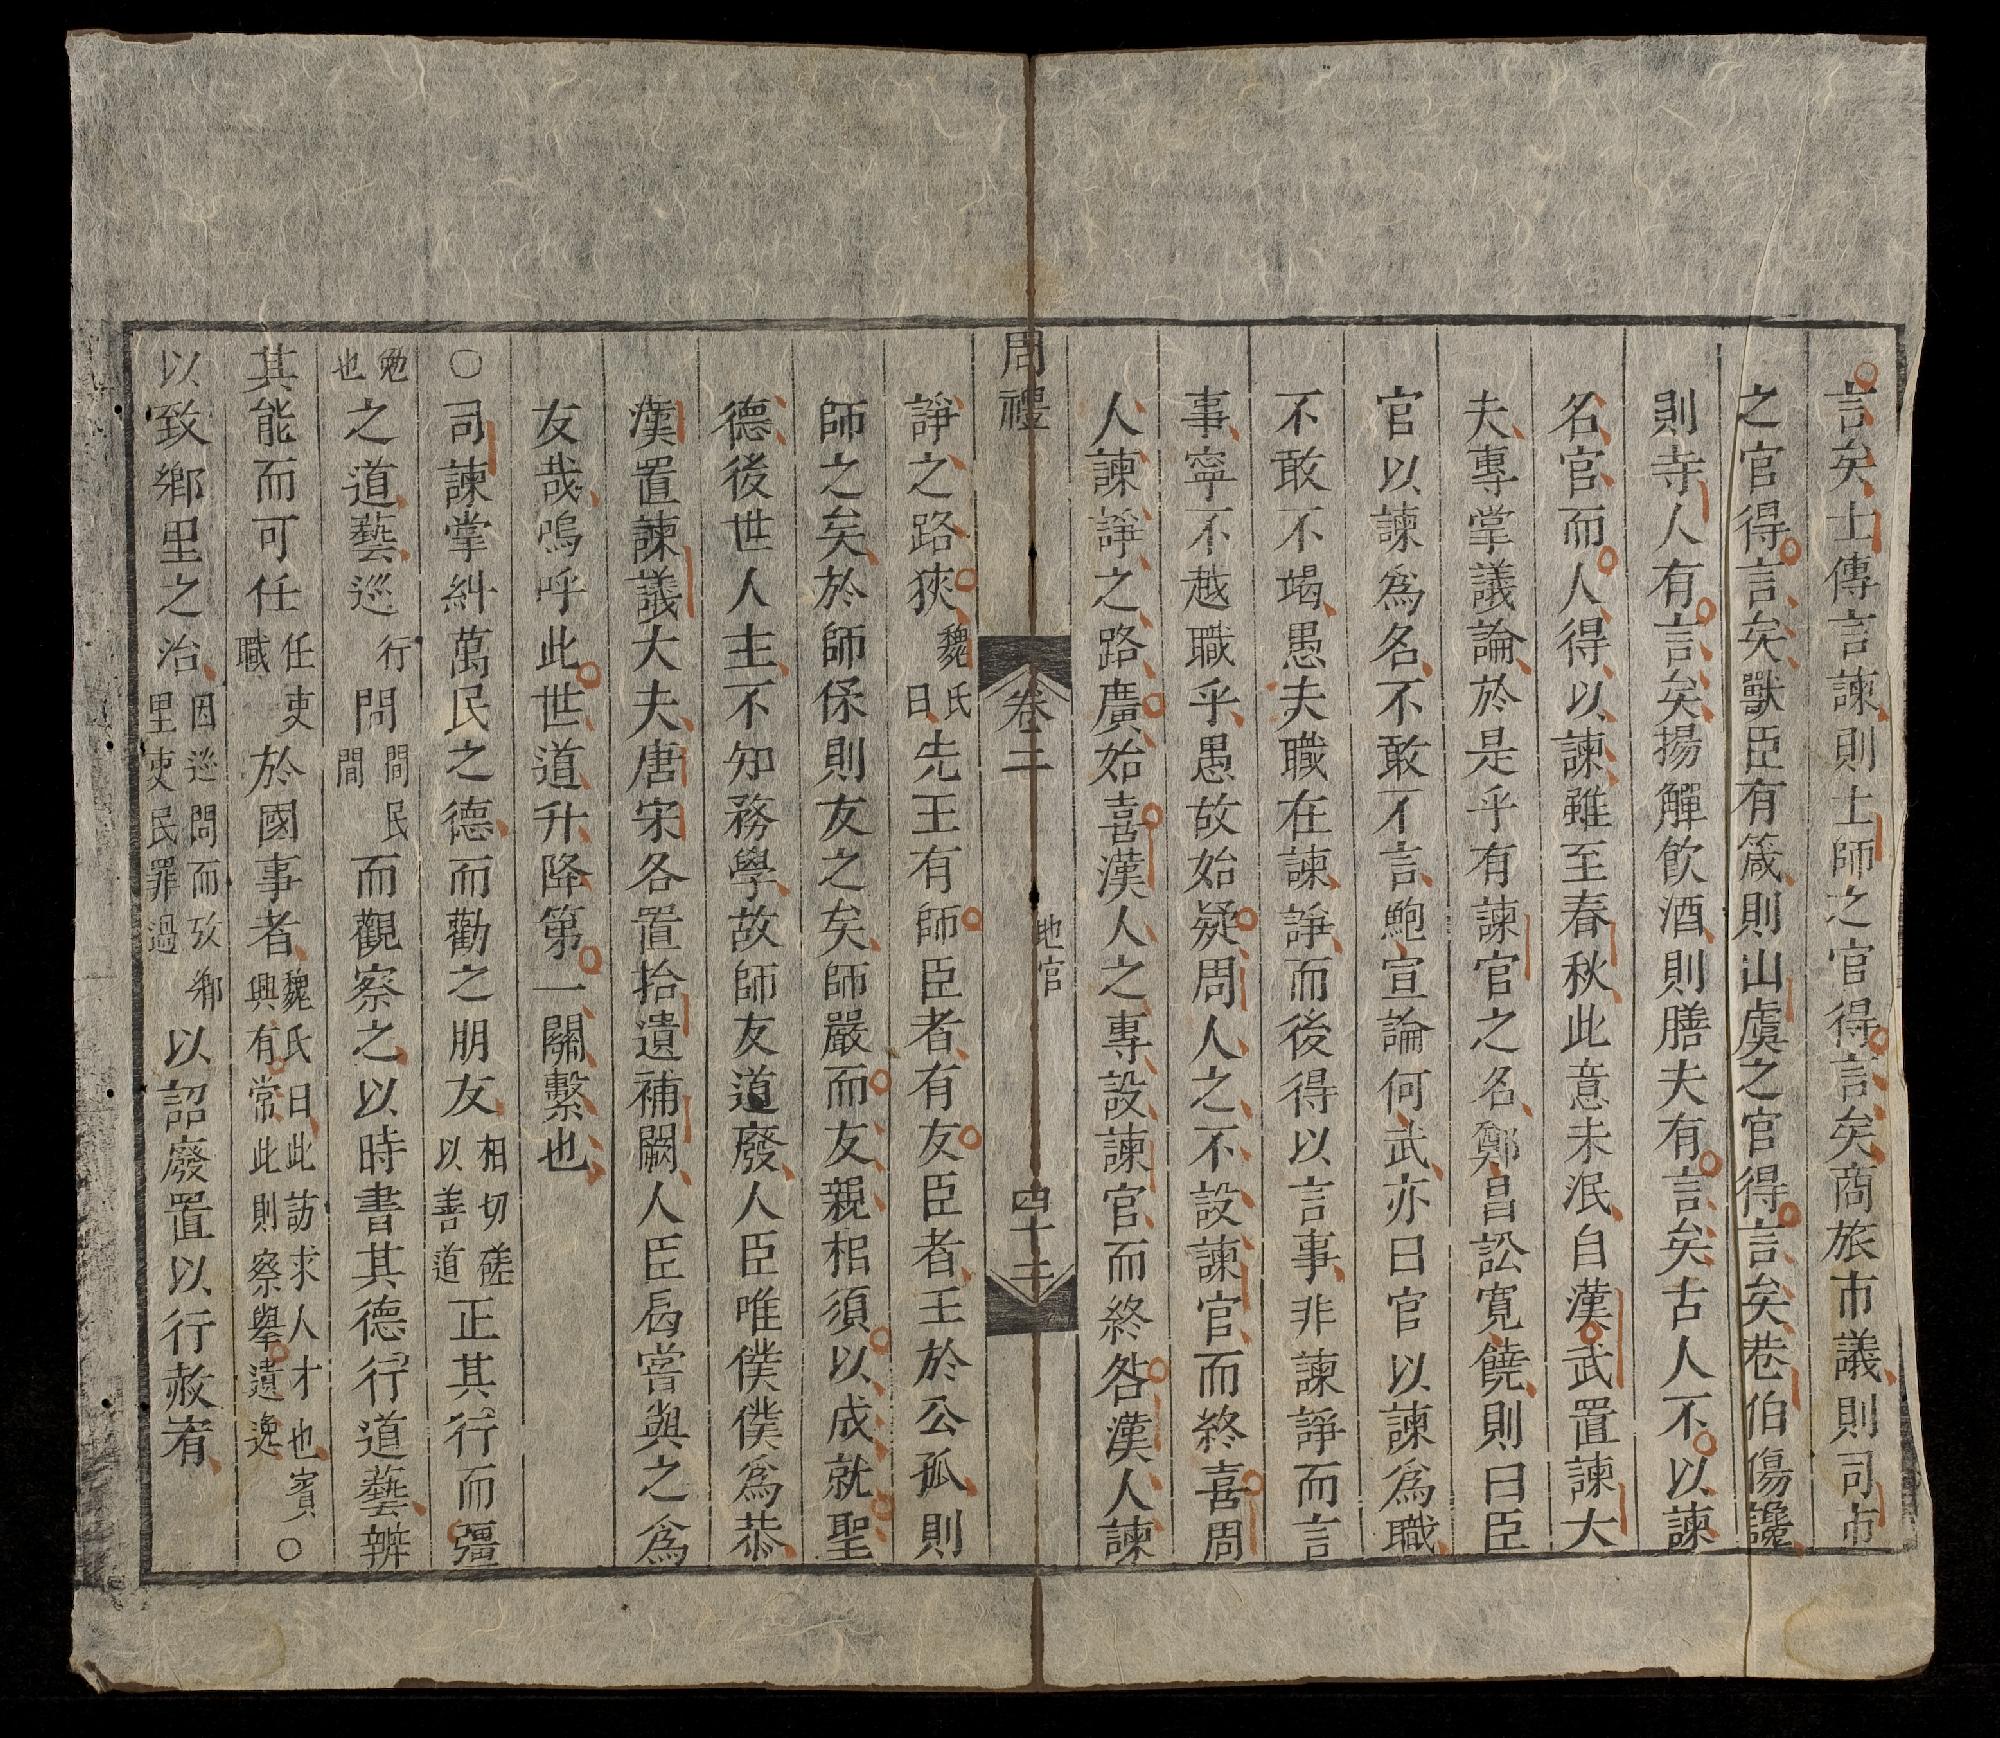 言矣士傳言諫則士師之官得言矣商旅市議則司市
之官得言矣獸臣有箴則山虞之官得言矣巷伯傷讒
則寺人有言矣揚觶飲酒則膳夫有言矣古人不以諫
名官而人得以諫雖至春秋此意未泯自漢武置諫大
夫專掌議論於是乎有諫官之名鄭昌訟寬饒則曰臣
官以諫爲名不敢不言鮑宣論何武亦曰官以諫爲職
不敢不竭愚夫職在諫諍而後得以言事非諫諍而言
事寧不越職乎愚故始疑周人之不設諫官而終喜周
人諫諍之路廣始喜漢人之專設諫官而終咎漢人諫
周禮 卷二 地官 四十三
諍之路狹魏氏曰先王有師臣者有友臣者王於公孤則
師之矣於師保則友之矣師嚴而友親相須以成就聖
德後世人主不知務學故師友道廢人臣唯僕僕爲恭
漢置諫議大夫唐宋各置拾遺補闕人臣曷嘗與之爲
友哉嗚呼此世道升降第一關繫也
○司諫掌糾萬民之德而勸之朋友相切磋以善道正其行而彊
勉也之道藝巡行問問民間而觀察之以時書其德行道藝辨
其能而可任任吏職於國事者魏氏曰此訪求人才也賓○興有常此則察舉遺逸
以致鄉里之治因巡問而攷鄉里吏民罪過以詔廢置以行赦宥